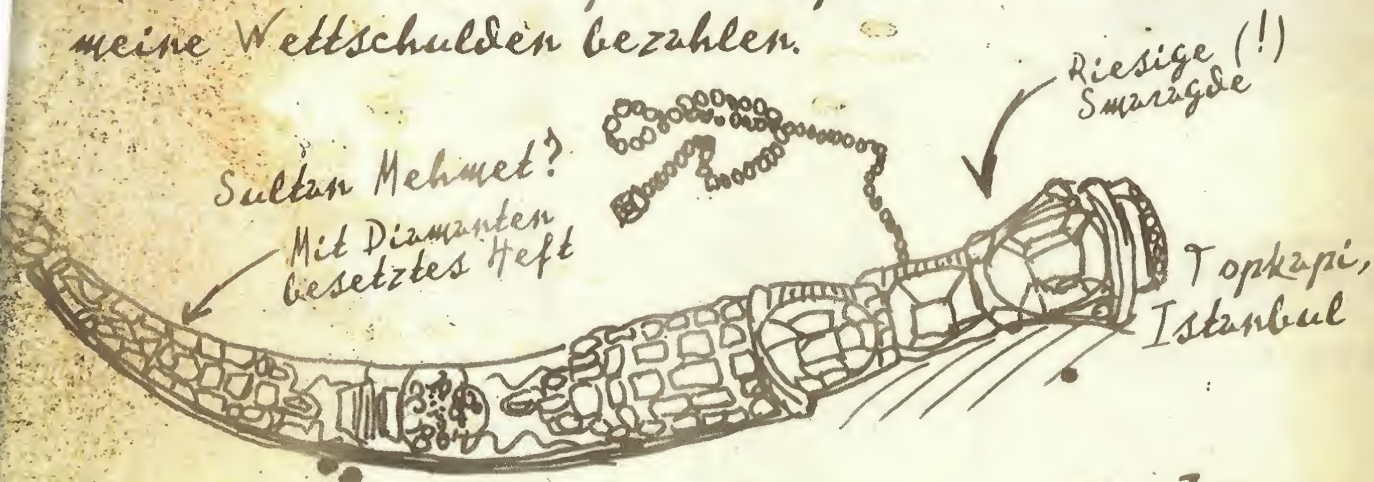 meine Wettschulden bezahlen.
Riesige (!)
Smaragde
Sultan Mehmet?
Mit Diamanten
besetztes Heft
Topkapi,
Istanbul